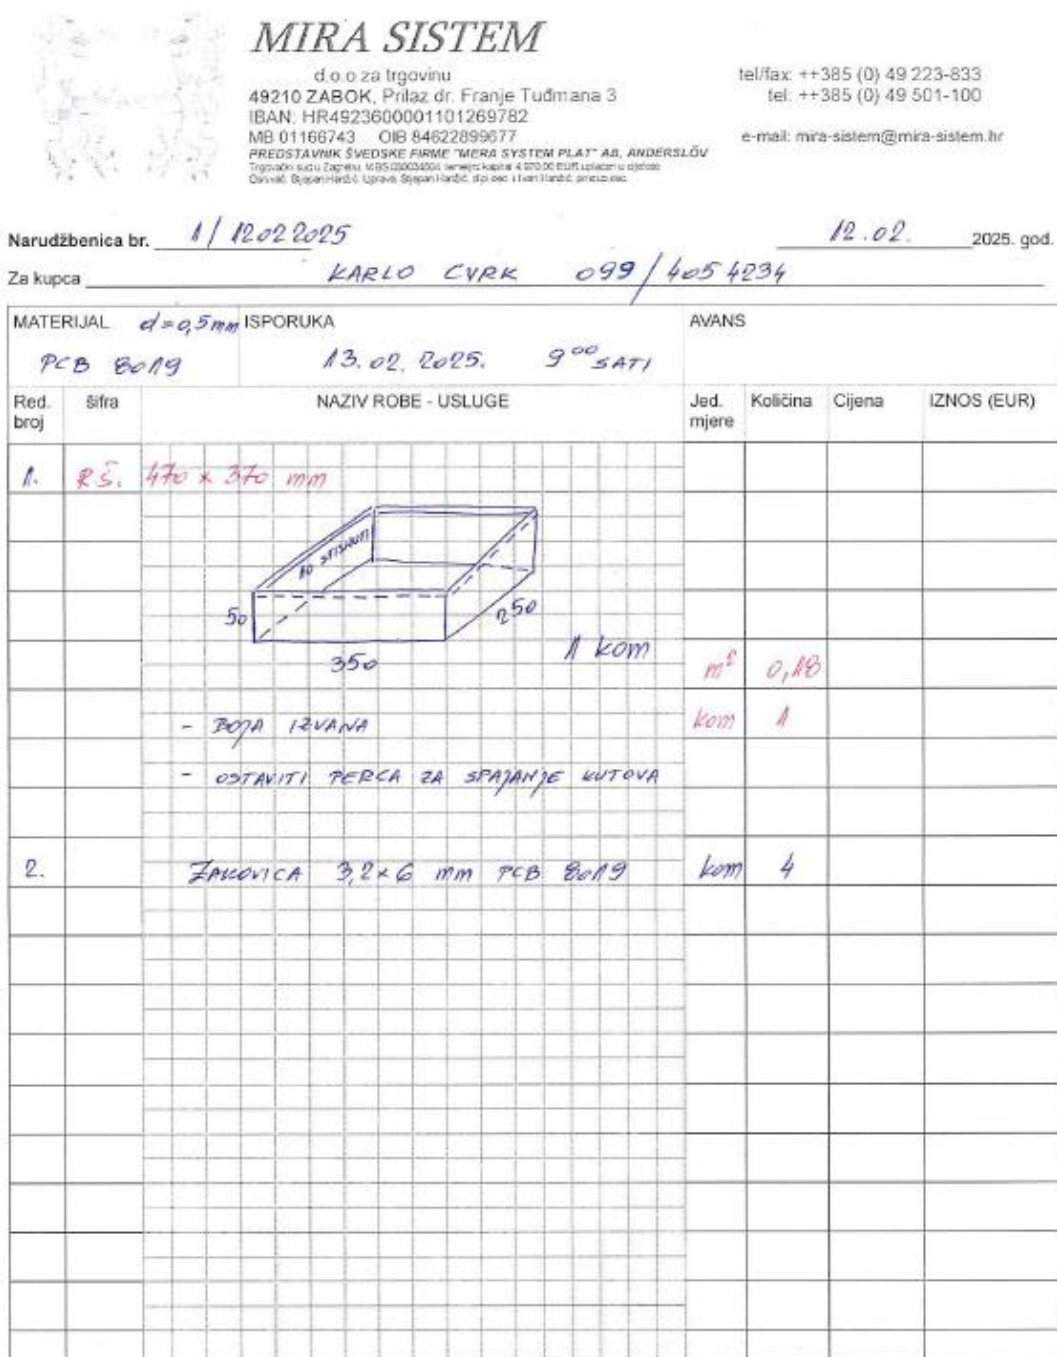 MIRA SISTEM
d.o.o za trgovinu
49210 ZABOK, Prilaz dr. Franje Tuđmana 3
IBAN: HR4923600001101269782
MB 01166743 OIB 84622899677
PREDSTAVNIK ŠVEDSKE FIRME "MERA SYSTEM PLAT" AB, ANDERSLÖV
tel/fax: ++385 (0) 49 223-833
tel: ++385 (0) 49 501-100
e-mail: mira-sistem@mira-sistem.hr
Narudžbenica br. 1/12022025 12.02. 2025. god.
Za kupca KARLO CVRK 099/4054234
MATERIJAL d=0,5mm ISPORUKA AVANS
PCB 8019 13.02.2025. 9⁰⁰ SATI
Red. broj šifra NAZIV ROBE - USLUGE Jed. mjere Količina Cijena IZNOS (EUR)
1. RŠ. 470 x 370 mm
10 STISNUTI
50
250
350
1 kom
m² 0,18
- BOJA IZVANA kom 1
- OSTAVITI PERCA ZA SPAJANJE KUTOVA
2. ZAKOVICA 3,2x6 mm PCB 8019 kom 4